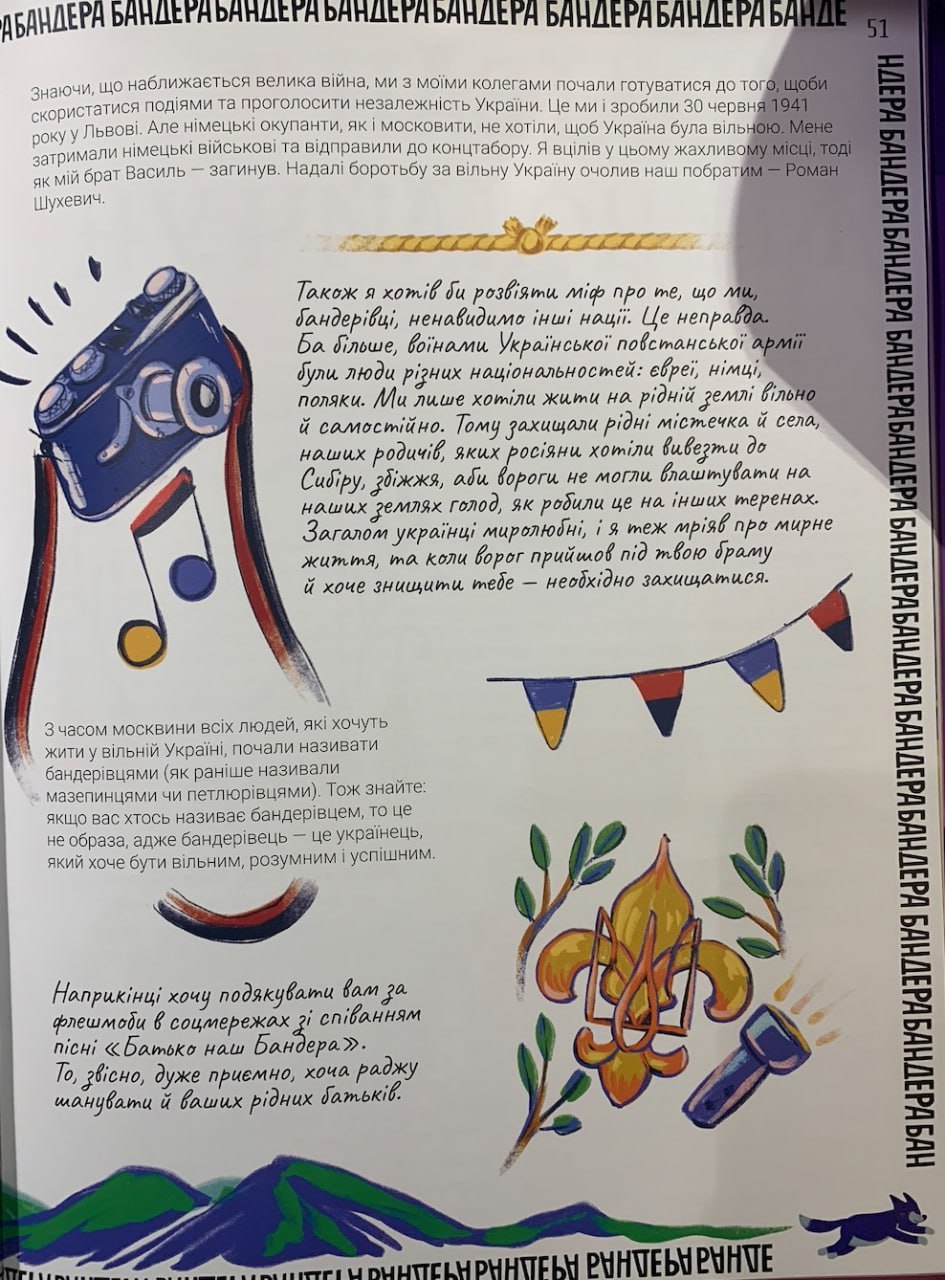 БАНДЕРА БАНДЕРА БАНДЕРА БАНДЕРА БАНДЕРА БАНДЕРА БАНДЕРА БАНДЕ
51
Знаючи, що наближається велика війна, ми з моїми колегами почали готуватися до того, щоби
скористатися подіями та проголосити незалежність України. Це ми і зробили 30 червня 1941
року у Львові. Але німецькі окупанти, як і московити, не хотіли, щоб Україна була вільною. Мене
затримали німецькі військові та відправили до концтабору. Я вцілів у цьому жахливому місці, тоді
як мій брат Василь — загинув. Надалі боротьбу за вільну Україну очолив наш побратим — Роман
Шухевич.
Також я хотів би розвіяти міф про те, що ми,
бандерівці, ненавидимо інші нації. Це неправда.
Ба більше, воїнами Української повстанської армії
були люди різних національностей: євреї, німці,
поляки. Ми лише хотіли жити на рідній землі вільно
й самостійно. Тому захищали рідні містечка й села,
наших родичів, яких росіяни хотіли вивезти до
Сибіру, збіжжя, аби вороги не могли влаштувати на
наших землях голод, як робили це на інших теренах.
Загалом українці миролюбні, і я теж мріяв про мирне
життя, та коли ворог прийшов під твою браму
й хоче знищити тебе — необхідно захищатися.
З часом москвини всіх людей, які хочуть
жити у вільній Україні, почали називати
бандерівцями (як раніше називали
мазепинцями чи петлюрівцями). Тож знайте:
якщо вас хтось називає бандерівцем, то це
не образа, адже бандерівець — це українець,
який хоче бути вільним, розумним і успішним.
Наприкінці хочу подякувати вам за
флешмоби в соцмережах зі співанням
пісні «Батько наш Бандера».
То, звісно, дуже приємно, хоча раджу
шанувати й ваших рідних батьків.
НДЕРА БАНДЕРА БАНДЕРА БАНДЕРА БАНДЕРА БАНДЕРА БАНДЕРА БАНДЕРА БАНДЕРА БАНДЕРА БАН